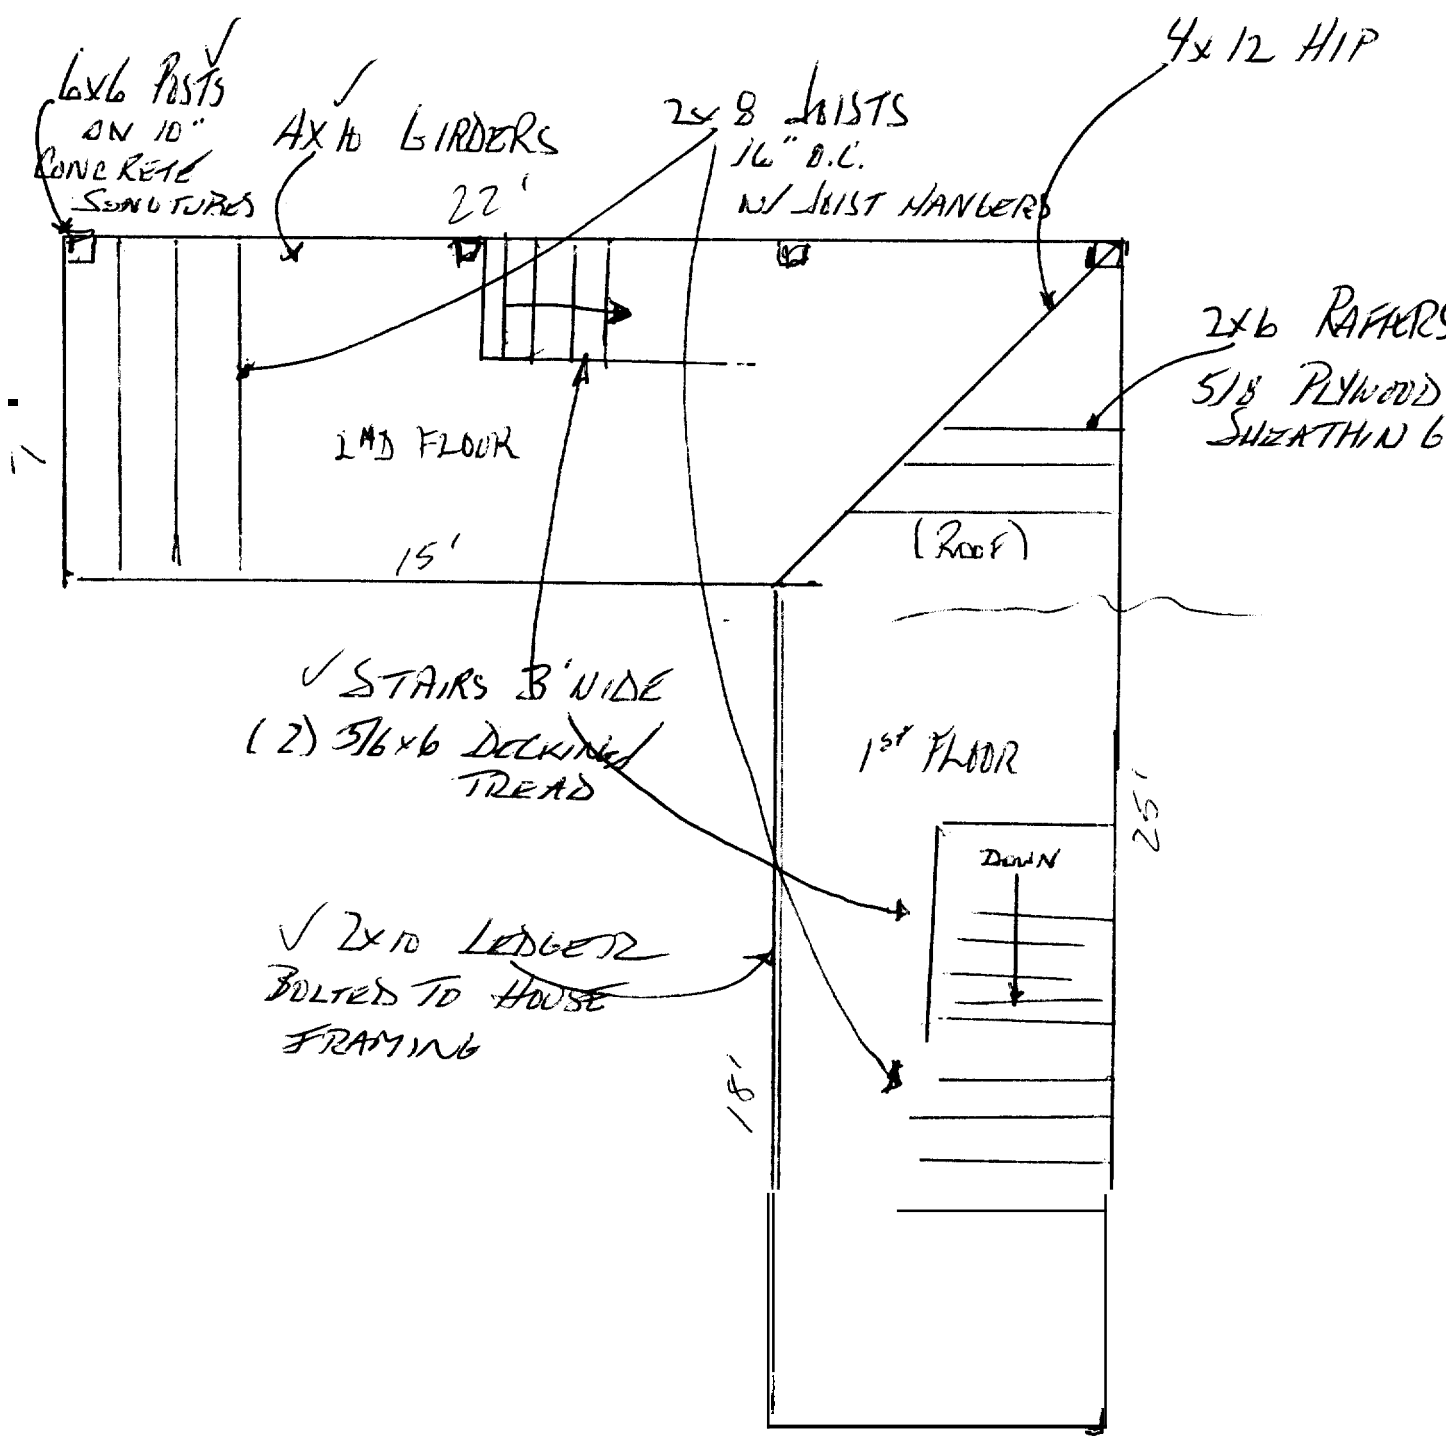 6x6 POSTS
ON 10"
CONCRETE
SONOTUBES
4x10 GIRDERS
22'
2x8 JOISTS
16" O.C.
W/ JOIST HANGERS
4x12 HIP
2x6 RAFTERS
5/8 PLYWOOD
SHEATHING
7'
2ND FLOOR
15'
(ROOF)
STAIRS 3' WIDE
(2) 5/6x6 DECKING/
TREAD
1ST FLOOR
25'
DOWN
2x10 LEDGER
BOLTED TO HOUSE
FRAMING
18'